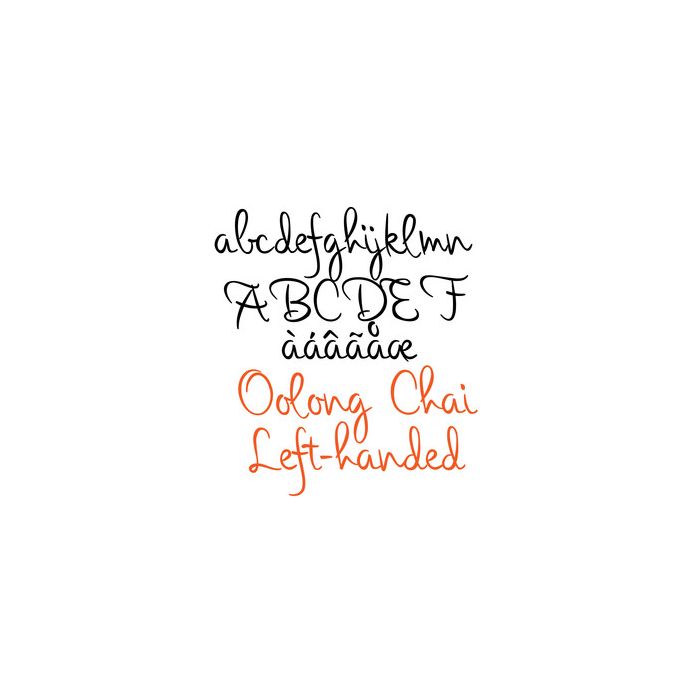 abcdefghijklmn
ABCDEF
àáâãåæ
Oolong Chai
Left-handed